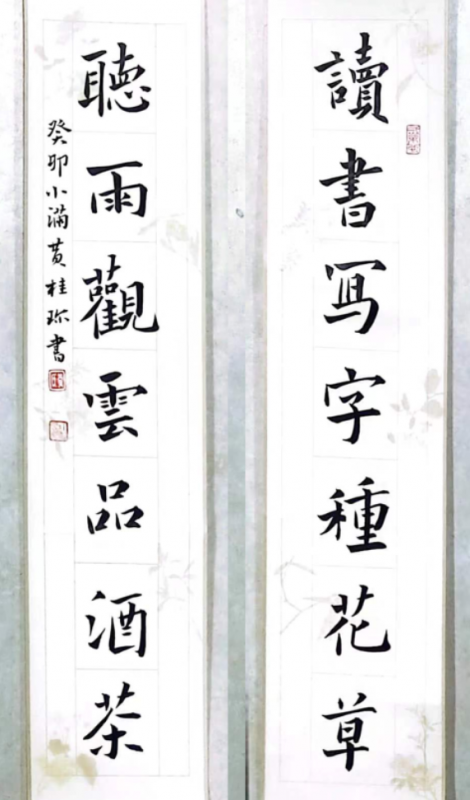 讀書写字種花草
聽雨觀雲品酒茶
癸卯小滿黄桂珎書